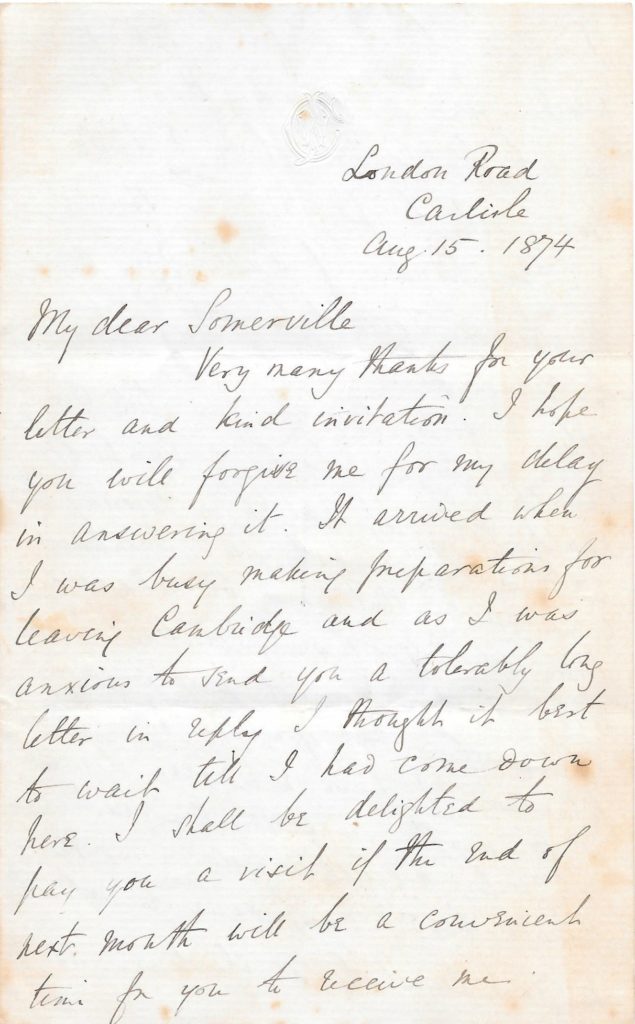 London Road
Carlisle
Aug. 15. 1874
My dear Somerville
Very many thanks for your
letter and kind invitation. I hope
you will forgive me for my delay
in answering it. It arrived when
I was busy making preparations for
leaving Cambridge and as I was
anxious to send you a tolerably long
letter in reply I thought it best
to wait till I had come down
here. I shall be delighted to
pay you a visit if the end of
next month will be a convenient
time for you to receive me.